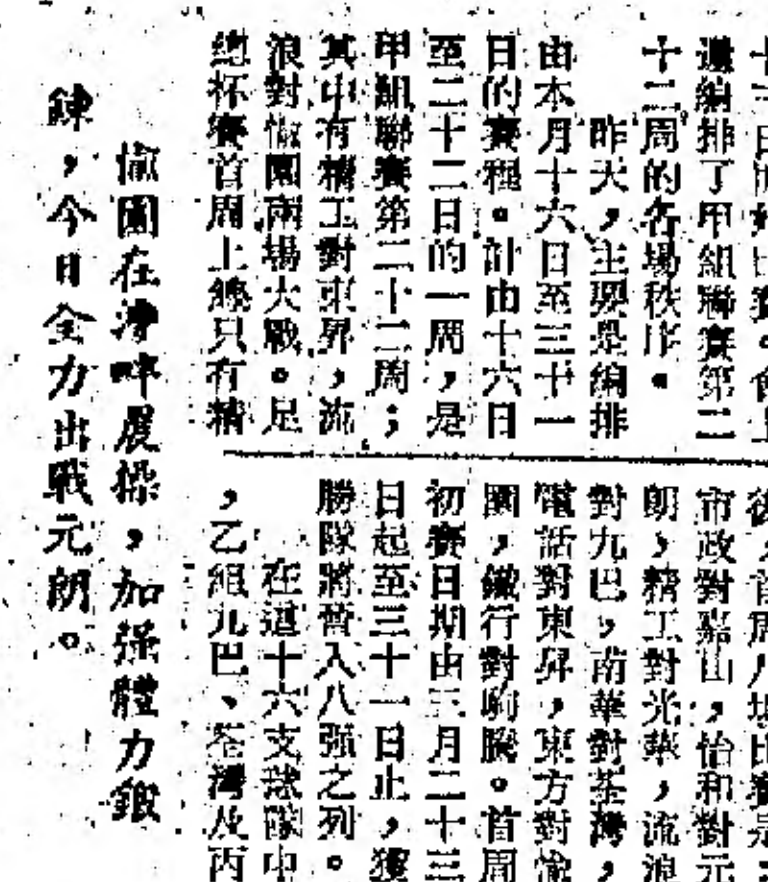 還編排了甲組聯賽第二
十二周的各場秩序。
昨天,主要是編排
由本月十六日至三十一
日的賽程。計由十六日
至二十二日的一周,是
甲組聯賽第二十二周;
其中有精工對東昇,流
浪對愉園兩場大戰。足
總杯賽首周上總只有精
市政對嘉山,怡和對元
朗,精工對光華,流浪
對九巴,南華對荃灣,
電話對東昇,東方對愉
園,鐵行對駒騰。首周
初賽日期由三月二十三
日起至三十一日止,獲
勝隊將晉入八强之列。
在這十六支球隊中
,乙組九巴、荃灣及丙
愉園在灣畔晨操,加强體力鍛
鍊,今日全力出戰元朗。